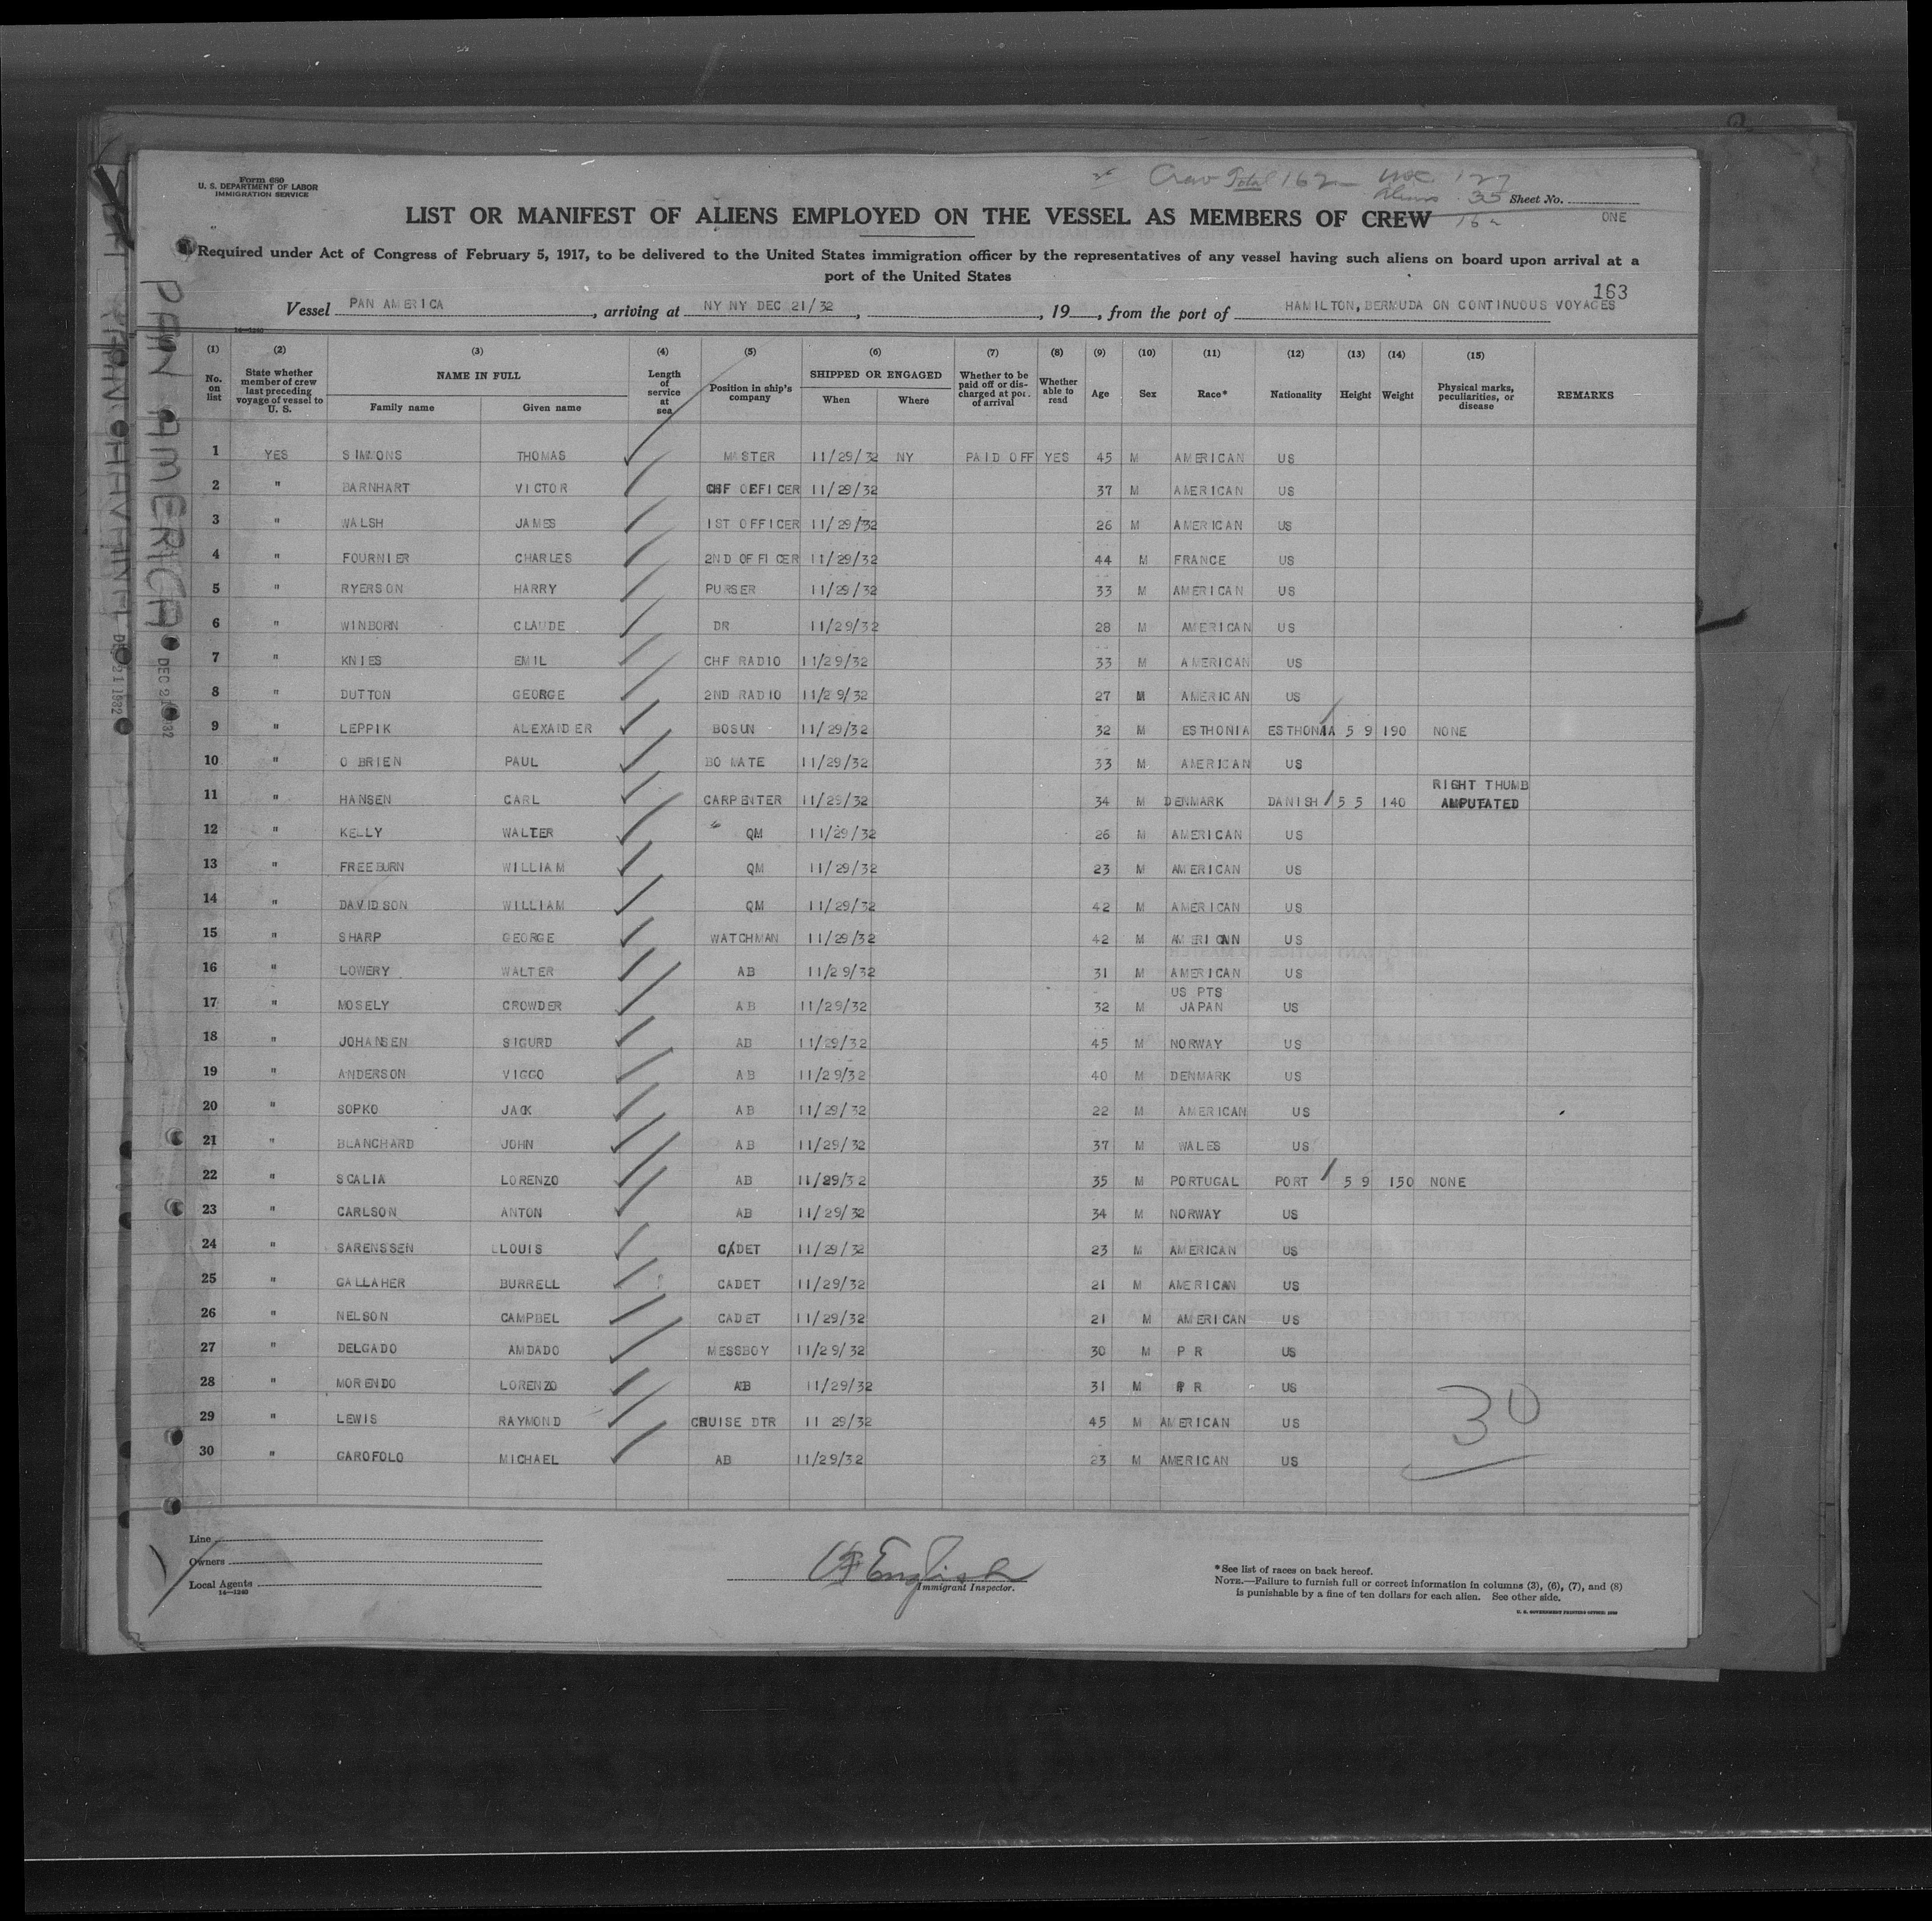 Form 680
U. S. DEPARTMENT OF LABOR
IMMIGRATION SERVICE
Crew Total 162 USC 127
Aliens 35
162
Sheet No.
ONE
LIST OR MANIFEST OF ALIENS EMPLOYED ON THE VESSEL AS MEMBERS OF CREW
Required under Act of Congress of February 5, 1917, to be delivered to the United States immigration officer by the representatives of any vessel having such aliens on board upon arrival at a
port of the United States
163
Vessel PAN AMERICA, arriving at NY NY DEC 21/32, , 19 , from the port of HAMILTON, BERMUDA ON CONTINUOUS VOYAGES
14—1240
PAN AMERICA
DEC 21 1932
DEC 21 1932
(1) (2) (3) (4) (5) (6) (7) (8) (9) (10) (11) (12) (13) (14) (15)
No. on list State whether member of crew last preceding voyage of vessel to U. S. NAME IN FULL Family name Given name Length of service at sea Position in ship's company SHIPPED OR ENGAGED When Where Whether to be paid off or discharged at port of arrival Whether able to read Age Sex Race* Nationality Height Weight Physical marks, peculiarities, or disease REMARKS
1 YES SIMMONS THOMAS MASTER 11/29/32 NY PAID OFF YES 45 M AMERICAN US
2 " BARNHART VICTOR CHF OFFICER 11/29/32 37 M AMERICAN US
3 " WALSH JAMES 1ST OFFICER 11/29/32 26 M AMERICAN US
4 " FOURNIER CHARLES 2ND OFFICER 11/29/32 44 M FRANCE US
5 " RYERSON HARRY PURSER 11/29/32 33 M AMERICAN US
6 " WINBORN CLAUDE DR 11/29/32 28 M AMERICAN US
7 " KNIES EMIL CHF RADIO 11/29/32 33 M AMERICAN US
8 " DUTTON GEORGE 2ND RADIO 11/29/32 27 M AMERICAN US
9 " LEPPIK ALEXANDER BOSUN 11/29/32 32 M ESTHONIA ESTHONIA 5 9 190 NONE
10 " O BRIEN PAUL BO MATE 11/29/32 33 M AMERICAN US
11 " HANSEN CARL CARPENTER 11/29/32 34 M DENMARK DANISH 5 5 140 RIGHT THUMB AMPUTATED
12 " KELLY WALTER QM 11/29/32 26 M AMERICAN US
13 " FREEBURN WILLIAM QM 11/29/32 23 M AMERICAN US
14 " DAVIDSON WILLIAM QM 11/29/32 42 M AMERICAN US
15 " SHARP GEORGE WATCHMAN 11/29/32 42 M AMERICAN US
16 " LOWERY WALTER AB 11/29/32 31 M AMERICAN US
17 " MOSELY CROWDER AB 11/29/32 32 M US PTS JAPAN US
18 " JOHANSEN SIGURD AB 11/29/32 45 M NORWAY US
19 " ANDERSON VIGGO AB 11/29/32 40 M DENMARK US
20 " SOPKO JACK AB 11/29/32 22 M AMERICAN US
21 " BLANCHARD JOHN AB 11/29/32 37 M WALES US
22 " SCALIA LORENZO AB 11/29/32 35 M PORTUGAL PORT 5 9 150 NONE
23 " CARLSON ANTON AB 11/29/32 34 M NORWAY US
24 " SARENSSEN LLOUIS CADET 11/29/32 23 M AMERICAN US
25 " GALLAHER BURRELL CADET 11/29/32 21 M AMERICAN US
26 " NELSON CAMPBEL CADET 11/29/32 21 M AMERICAN US
27 " DELGADO AMDADO MESSBOY 11/29/32 30 M P R US
28 " MORENDO LORENZO AB 11/29/32 31 M P R US
29 " LEWIS RAYMOND CRUISE DTR 11 29/32 45 M AMERICAN US
30 " GAROFOLO MICHAEL AB 11/29/32 23 M AMERICAN US
30
Line
Owners
Local Agents
14—1240
English
Immigrant Inspector.
*See list of races on back hereof.
NOTE.—Failure to furnish full or correct information in columns (3), (6), (7), and (8)
is punishable by a fine of ten dollars for each alien. See other side.
U. S. GOVERNMENT PRINTING OFFICE